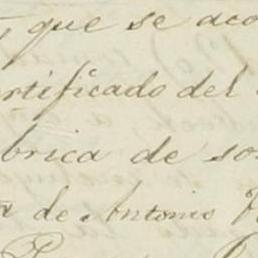 que se aco
rtificado del
brica de so
a de Antonio